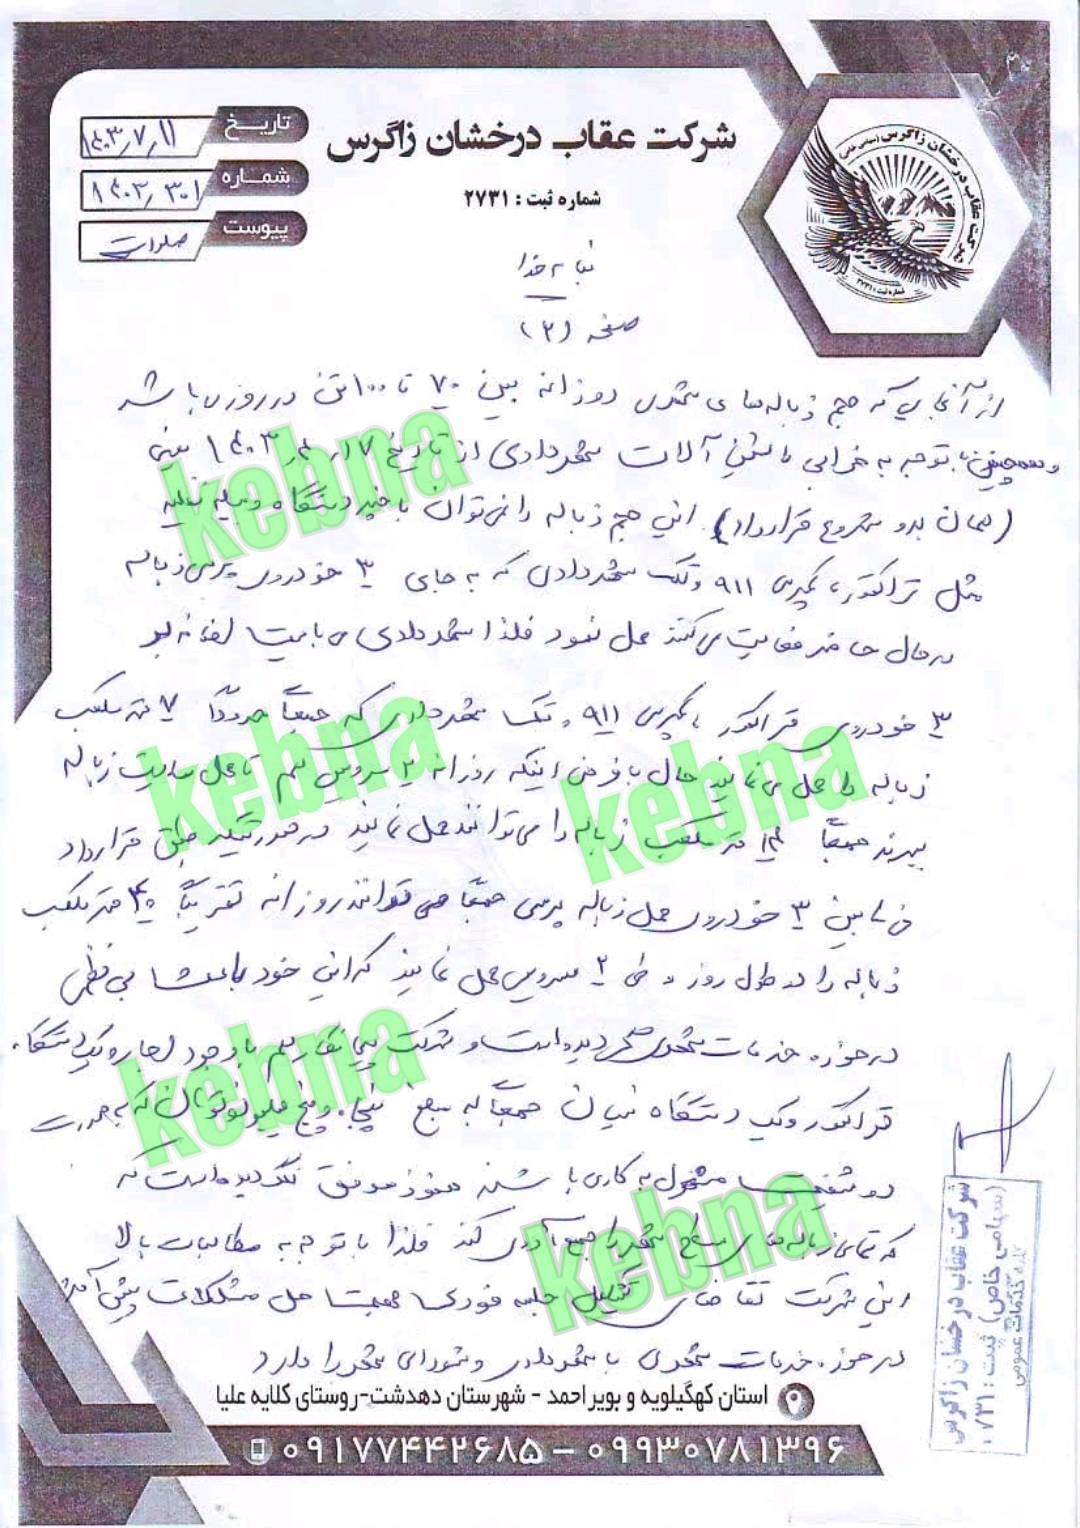 شرکت عقاب درخشان زاگرس
شماره ثبت : ۲۷۳۱
تاریخ ۱۴۰۳٫۷٫۱۱
شماره ۱۴۰۳٫۳۰۱
پیوست
شرکت عقاب درخشان زاگرس (سهامی خاص)
شماره ثبت : ۲۷۳۱
بنام خدا
صفحه (۲)
از آنجایی که حجم زباله‌های شهری روزانه بین ۷۰ تا ۱۰۰ تن در روز می باشد
و همچنین با توجه به خرابی ماشین آلات شهرداری از تاریخ ۱۴۰۳٫۴٫۱۷ یعنی
(همان بدو شروع قرارداد) این حجم زباله را نمی‌توان با چند دستگاه وسیله نقلیه
مثل تراکتور، کمپرسی ۹۱۱ و تک شهرداری که به جای ۳ خودروی پرسی زباله
در حال حاضر فعالیت می‌کنند حمل نمود فلذا شهرداری می بایست
۳ خودروی تراکتور، کمپرسی ۹۱۱ و تک شهرداری که جمعاً حدوداً ۷ متر مکعب
زباله را حمل می نمایند حال با فرض اینکه روزانه ۲ سرویس هم تا محل سایت زباله
ببرند جمعاً ۱۴ متر مکعب زباله را می‌توانند حمل نمایند در صورتیکه طبق قرارداد
فی مابین ۳ خودروی حمل زباله پرسی جمعاً می توانند روزانه تقریباً ۴۰ متر مکعب
زباله را در طول روز و طی ۲ سرویس حمل نمایند که این خود باعث بی نظمی
در حوزه خدمات شهری گردیده است و شرکت پیمانکار هم با وجود اجاره یک دستگاه
تراکتور و یک دستگاه نیسان جمعاً به مبلغ پنجاه و پنج میلیون تومان که به صورت
دو شیفت مشغول به کار می باشند هنوز موفق نگردیده است که
که تمامی زباله‌های سطح شهر را جمع آوری کند فلذا با توجه به مطالبات بالا
این شرکت تقاضای تشکیل جلسه فوری جهت حل مشکلات پیش آمده
در حوزه خدمات شهری با شهرداری و شورای شهر را دارد
شرکت عقاب درخشان زاگرس
(سهامی خاص) ثبت : ۲۷۳۱
کلیه خدمات عمومی
استان کهگیلویه و بویر احمد - شهرستان دهدشت-روستای کلایه علیا
۰۹۱۷۷۴۴۲۶۸۵ – ۰۹۹۳۰۷۸۱۳۹۶
kebna
kebna
kebna
kebna
kebna